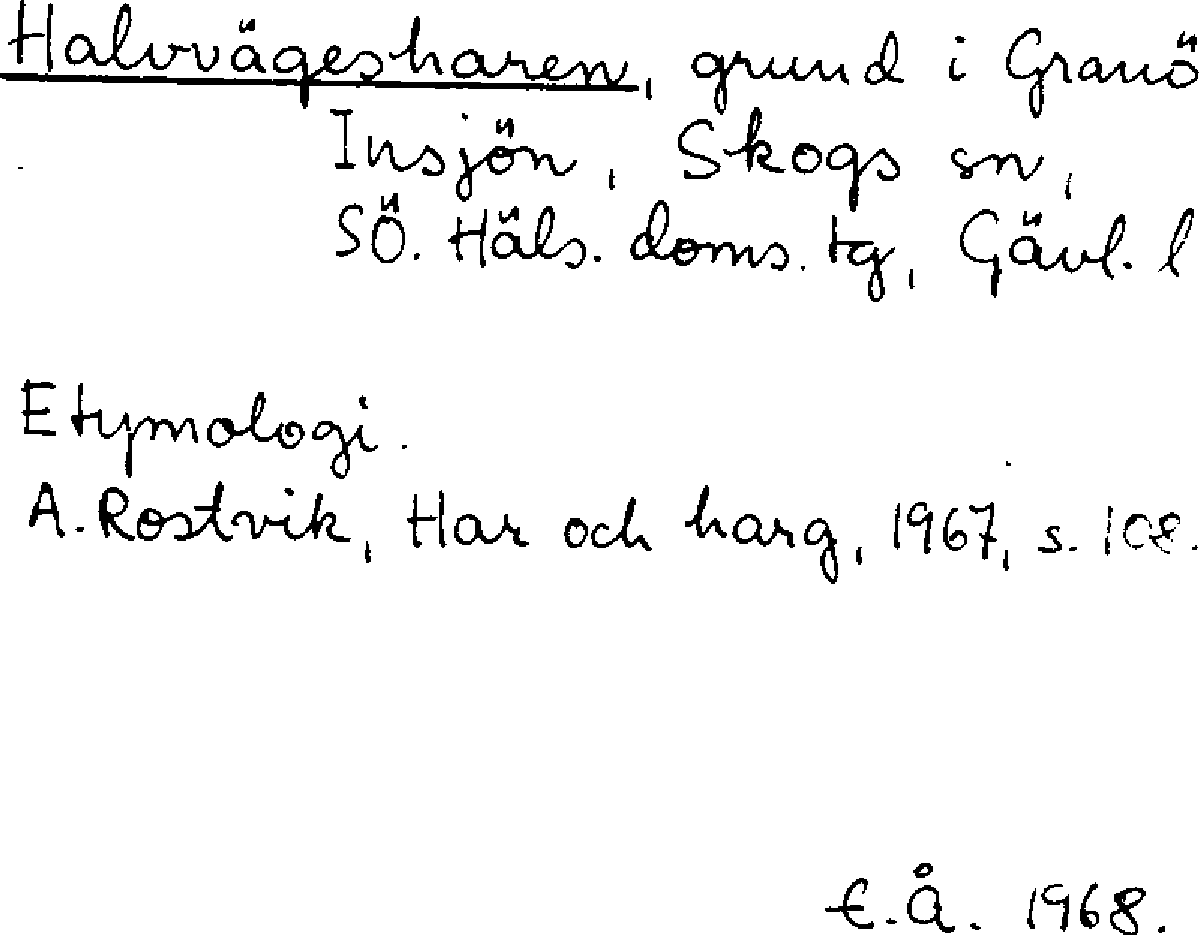 Halvvägesharen, grund i Granö
Insjön, Skogs sn,
SÖ. Häls. doms. tg, Gävl. l
Etymologi.
A. Rostvik, Har och harg, 1967, s. 108.
E.Å. 1968.